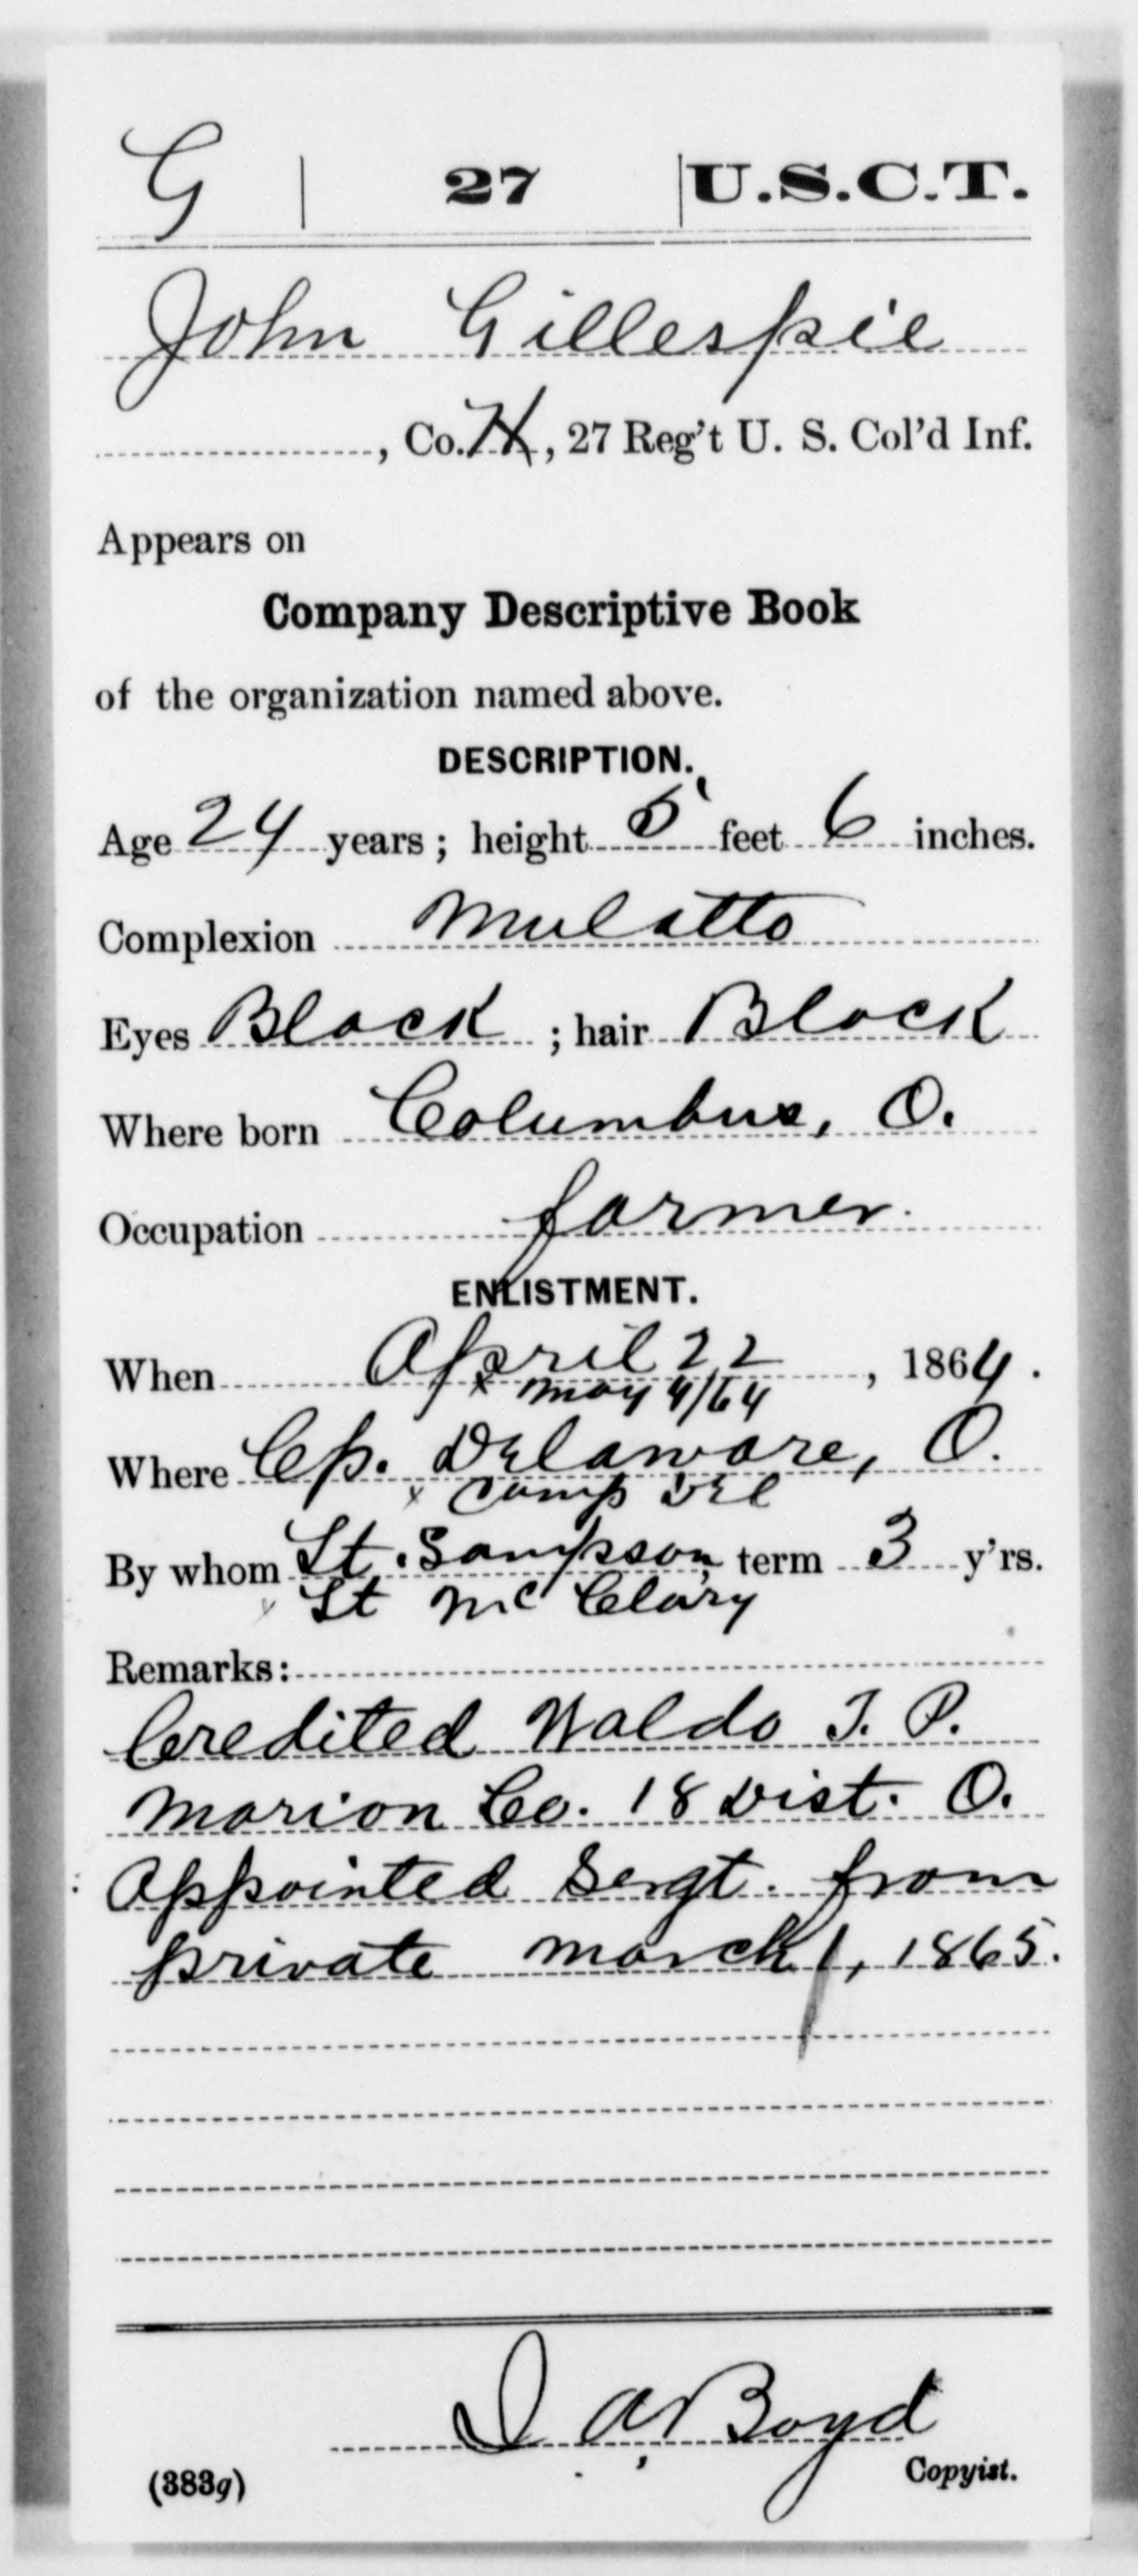 G | 27 | U.S.C.T.
John Gillespie
, Co. H, 27 Reg't U. S. Col'd Inf.
Appears on
Company Descriptive Book
of the organization named above.
DESCRIPTION.
Age 24 years; height 5 feet 6 inches.
Complexion Mulatto
Eyes Black; hair Black
Where born Columbus, O.
Occupation farmer.
ENLISTMENT.
When April 22, 1864.
x May 4/64
Where Cp. Delaware, O.
x Camp Del
By whom Lt. Sampson, term 3 y'rs.
x Lt McClary
Remarks:
Credited Waldo T. P.
Marion Co. 18 Dist. O.
Appointed Sergt. from
private March 1, 1865.
Boyd
Copyist.
(383g)